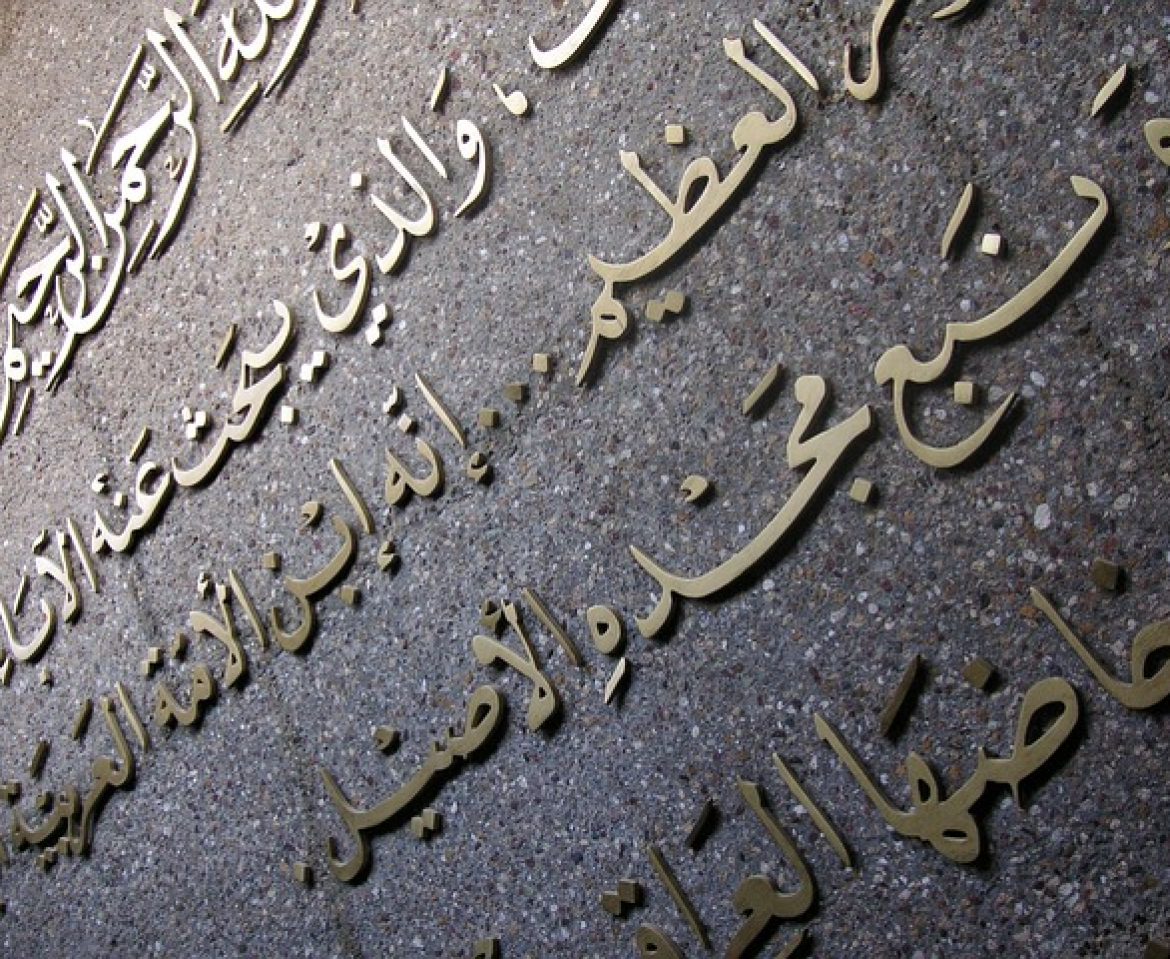 لله الرَّحْمنِ الرَّحِيمِ
وَالذي يبحَث عَنه الآبَا
العظيم .. إنه ابن الأمَة العَربيَة
مَنبع مَجدهِ الأصيل .
خاضَها العَراق